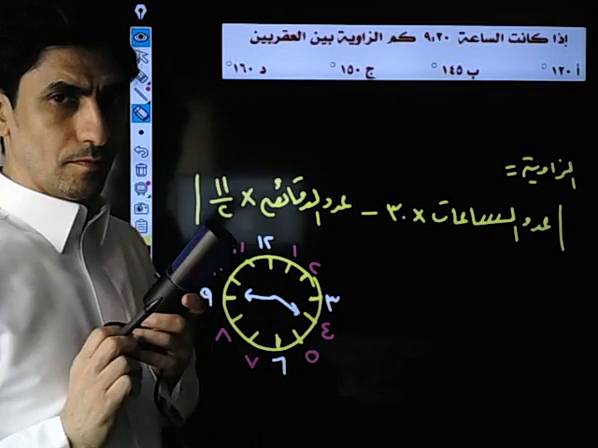 إذا كانت الساعة ٩:٢٠ كم الزاوية بين العقربين
أ ١٢٠° ب ١٤٥° ج ١٥٠° د ١٦٠°
الزاوية =
|عدد الساعات × ٣٠ – عدد الدقائق × ١١/٢|
١٢
١
٢
٣
٤
٥
٦
٧
٨
٩
١٠